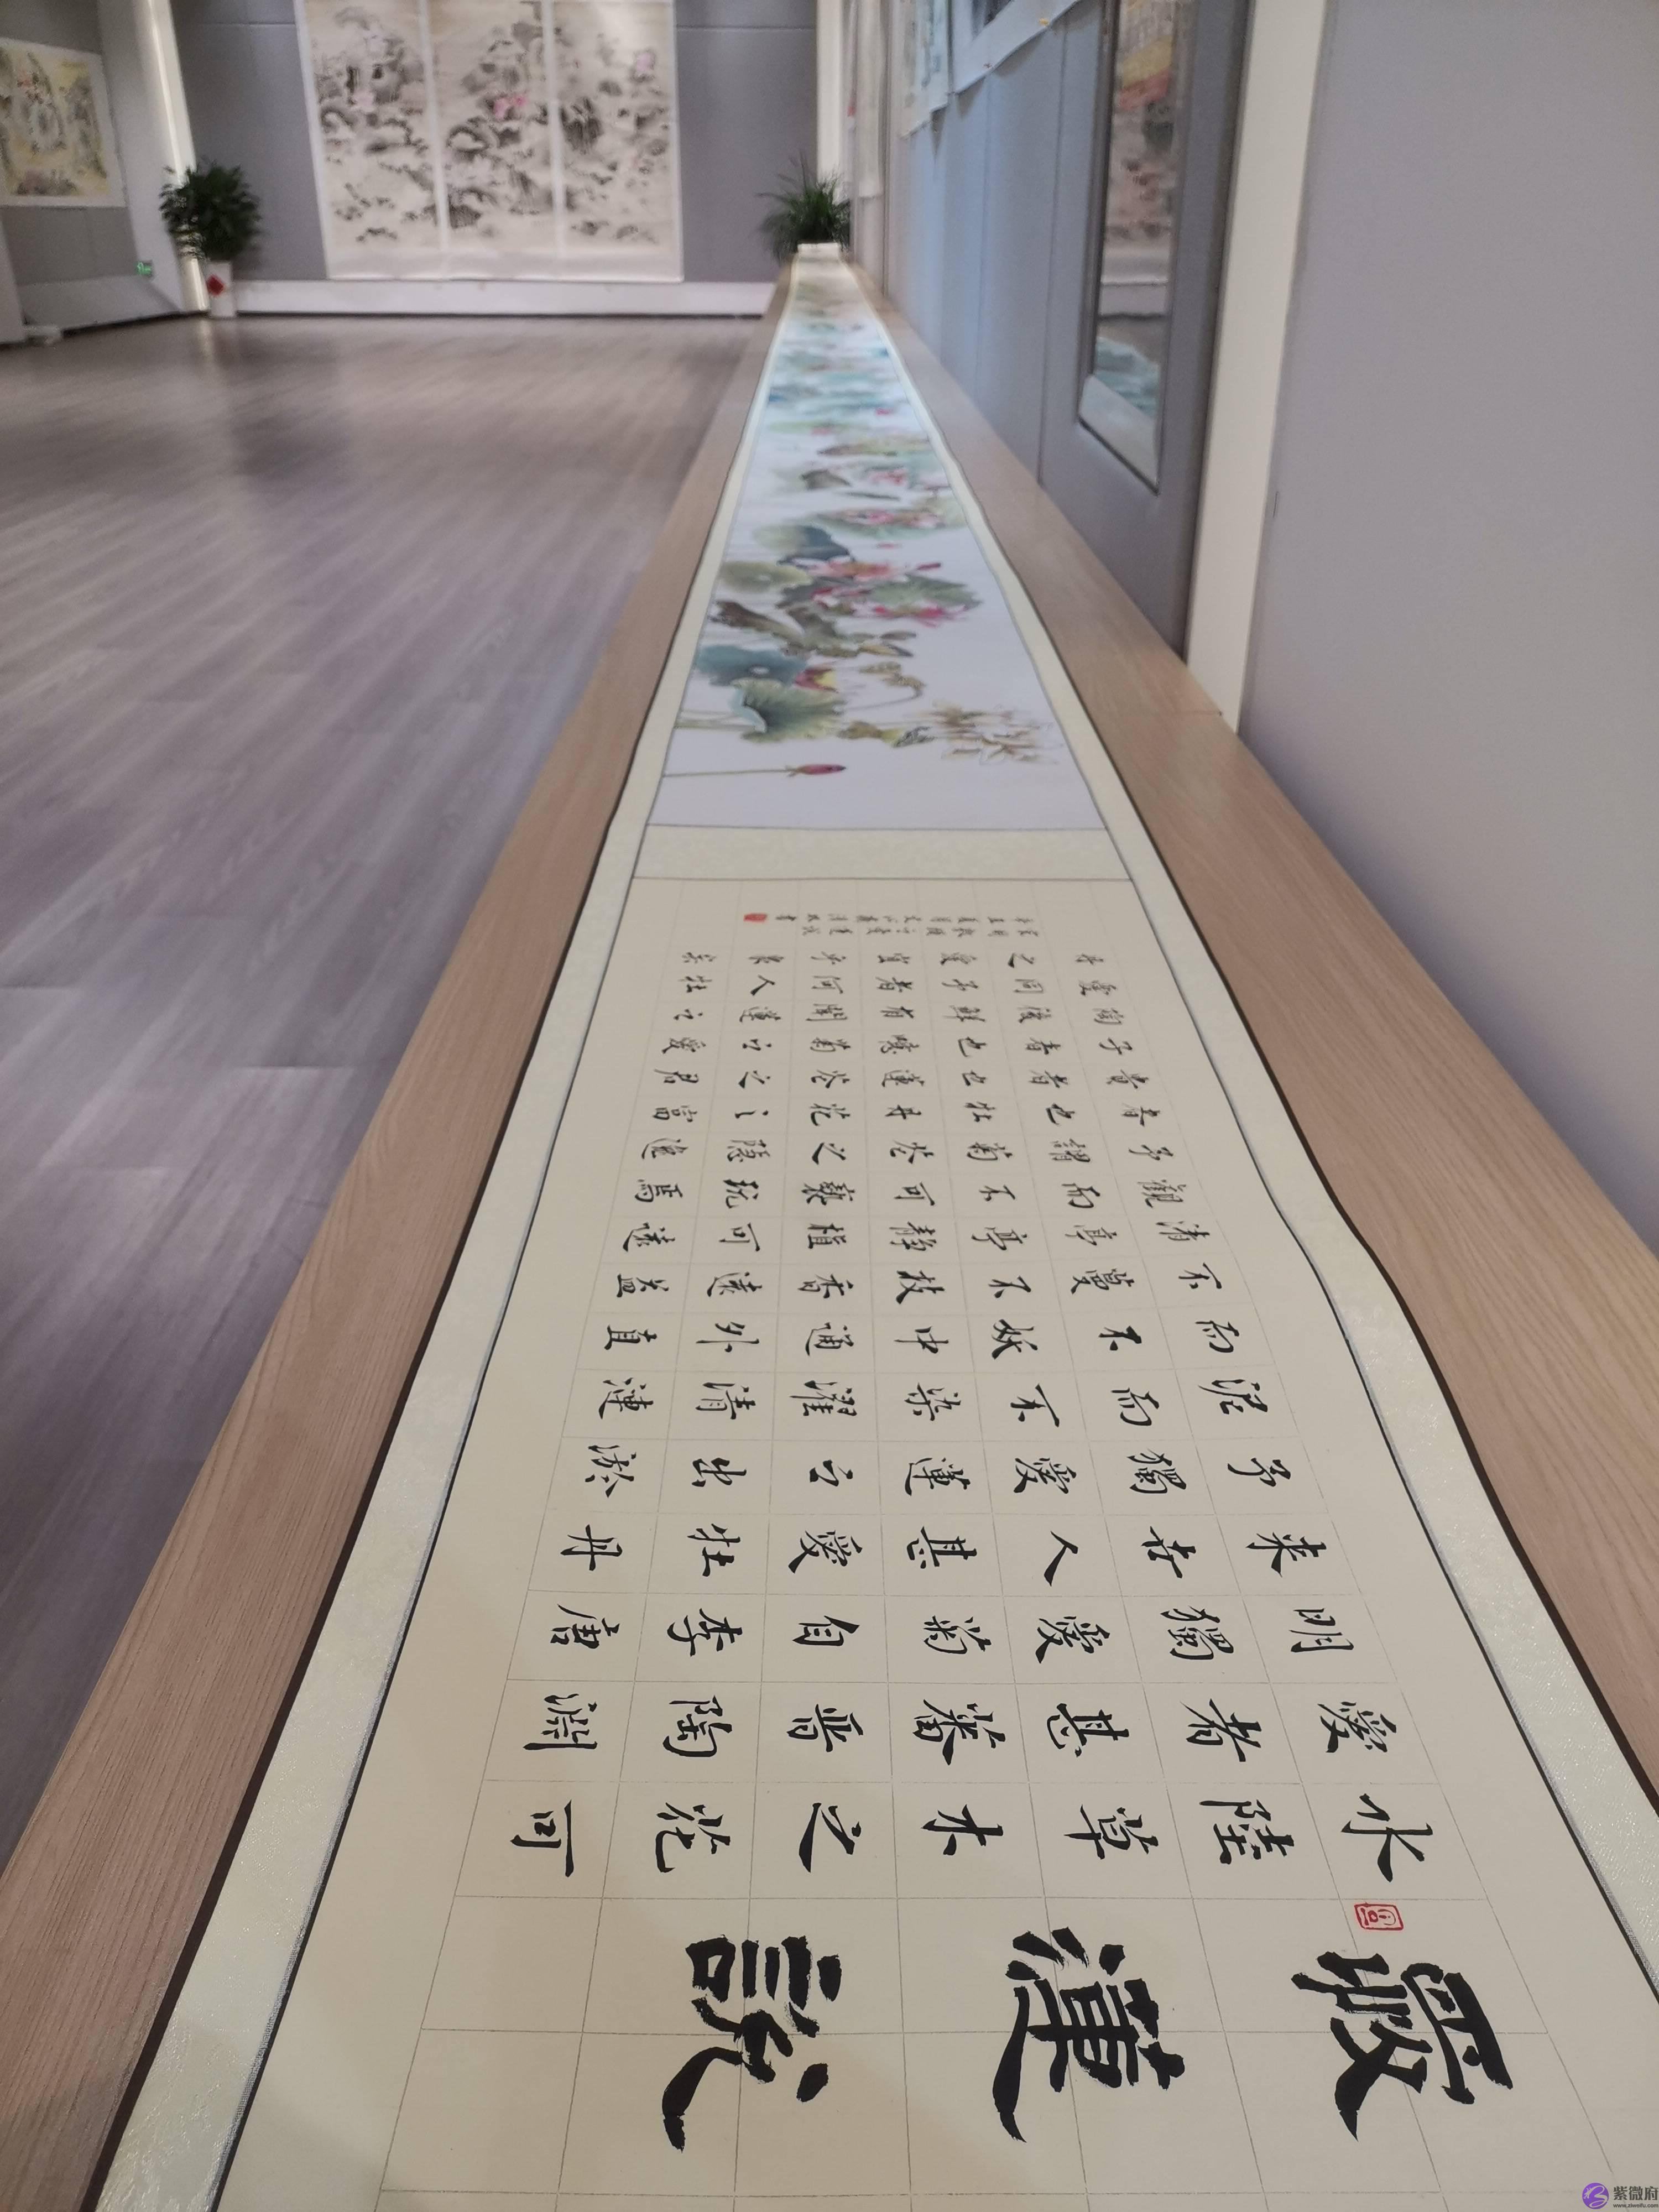 愛蓮說
水陸草木之花可
愛者甚蕃晉陶淵
明獨愛菊自李唐
来世人甚愛牡丹
予獨愛蓮之出淤
泥而不染濯清漣
而不妖中通外直
不蔓不枝香遠益
清亭亭静植可遠
觀而不可褻玩焉
予謂菊花之隱逸
者也牡丹花之富
貴者也蓮花之君
子者也噫菊之愛
陶後鮮有聞蓮之
愛同予者何人牡
丹之愛宜乎衆矣
紫微府
www.ziweifu.com